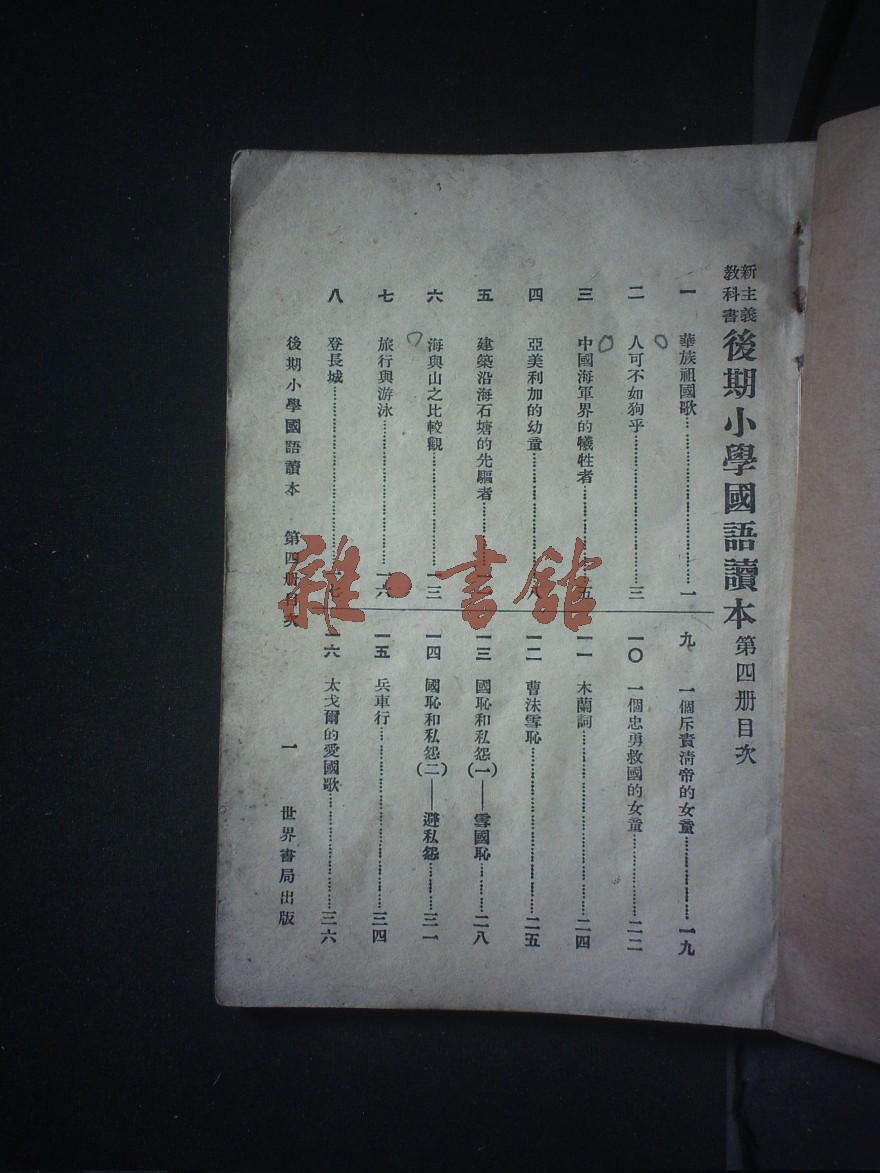 新主義教科書 後期小學國語讀本 第四册目次
一 華族祖國歌……一
二 人可不如狗乎……三
三 中國海軍界的犧牲者……五
四 亞美利加的幼童……八
五 建築沿海石塘的先驅者……
六 海與山之比較觀……一三
七 旅行與游泳……一六
八 登長城……一七
九 一個斥責清帝的女童……一九
一〇 一個忠勇救國的女童……二二
一一 木蘭詞……二四
一二 曹沫雪恥……二五
一三 國恥和私怨(一)——雪國恥……二八
一四 國恥和私怨(二)——避私怨……三一
一五 兵車行……三四
一六 太戈爾的愛國歌……三六
後期小學國語讀本 第四册目次 一 世界書局出版
雜·書館